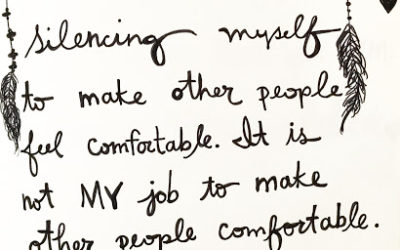 silencing myself
to make other people
feel comfortable. It is
not MY job to make
other people comfortable.